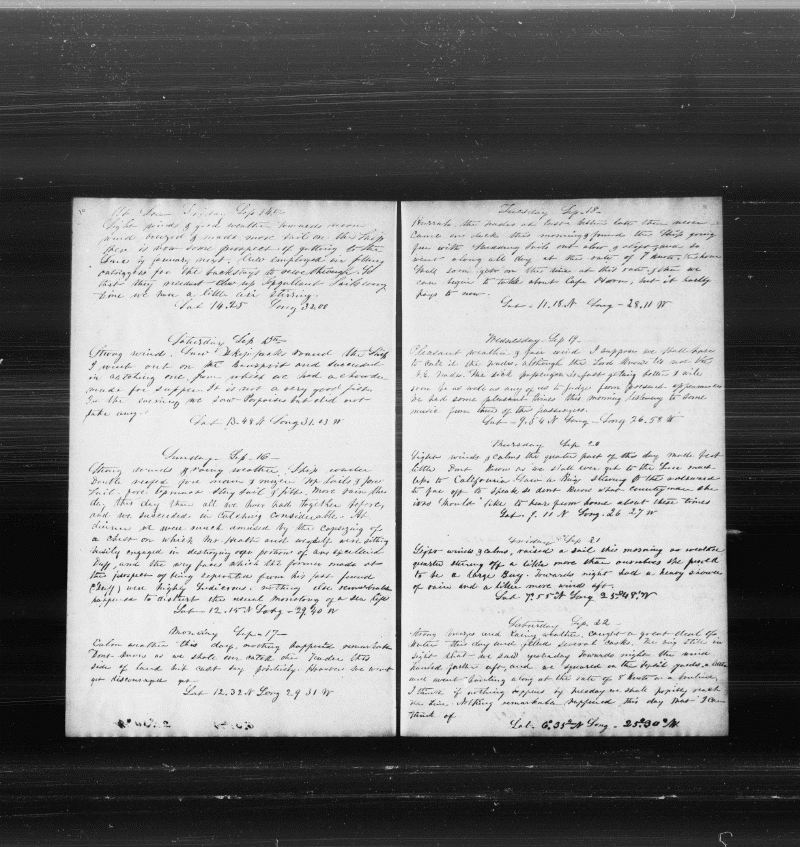 At Sea Friday Sep 14th
Light winds & good weather towards noon
wind breezed & made more sail on the Ship
there is now some prospect of getting to the
Line by january next. Crew employed in fitting
for the backstays to reeve through. So
that they needent clew up Topgallant Sails every
time we have a little air stirring.
Lat 14.25 Long 32.00
Saturday Sep 15th
Strong winds. Saw Skipjacks around the Ship
I went out on the and succeeded
in catching one from which we had a chowder
made for supper. It is not a very good fish
In the evening we saw Porpoises but did not
take any.
Lat 13.48 N Long 31.03 W
Sunday Sep 16
Strong winds & rainy weather. Ship under
Double reefed fore main & mizen Top Sails & fore
Sail fore Topmast Stay Sail & jibs. More rain this
day this day than all we have had together before,
and we succeeded in catching considerable. At
dinner we were much amused by the capsizing of
a chest on which Mr Heath and myself were sitting
busily engaged in destroying our portion of an excellent
Duff, and the wry faces which the former made at
the prospect of being separated from his just found
(Duff) were highly Ludicrous. nothing else remarkable
happened to disturb the usual monotony of a sea life
Lat 12.15 N Long - 29.40 W
Monday Sep - 17
Calm weather this day. nothing happened remarkable
Dont know as we shall ever catch the Trades this
side of land but cant say positively. However we wont
get discouraged yet.
Lat 12.32 N Long 29.31 W
Tuesday Sep. 18
Hurrah the trades at last better late than never
Came on deck this morning & found the Ship going
fine with Studding Sails out alow & aloft and so
went along all day at the rate of 7 knots. I hope
shall soon get on the Line at this rate & then we
can begin to talk about Cape Horn, but it hardly
pays to now.
Lat - 11.18 N Long - 28.11 W
Wednesday Sep 19
Pleasant weather & fair wind I suppose we shall have
to call it the trades, although the Lord knows its not the
N.E. Trades. The sick passenger is fast getting better & will
soon be as well as any of us to judge from present appearances
We had some pleasant times this morning listening to some
music from three of the passengers.
Lat - 9.54 N Long - Long 26.59 W
Thursday Sep 20
Light winds & calms the greater part of this day made but
little. Dont know as we shall ever get to the Line much
less to California. Saw a Brig steering to the
to far off to speak so dont know what countryman she
was. Would like to hear from home about these times
Lat 9.11 N Long. 26.27 W
Friday Sep 21
Light winds & calms, raised a sail this morning on weather
quarter steering off a little more than ourselves she proved
to be a large Brig. Towards night had a heavy shower
of rain and a little more wind aft.
Lat 7°.55" N Long 25°48" W
Saturday Sep. 22
Strong breezes and Rainy weather. Caught a great deal of
Water this day and filled several casks. The brig still in
sight that we saw yesterday. Towards night the wind
hauled further aft, and we squared in the yards, a little
and went bowling along at the rate of 8 knots on a bowline
I think if nothing happens by tuesday we shall pretty reach
the line. Nothing remarkable happened this day that I can
think of
Lat. 6°.35" N Long - 25°30" W.